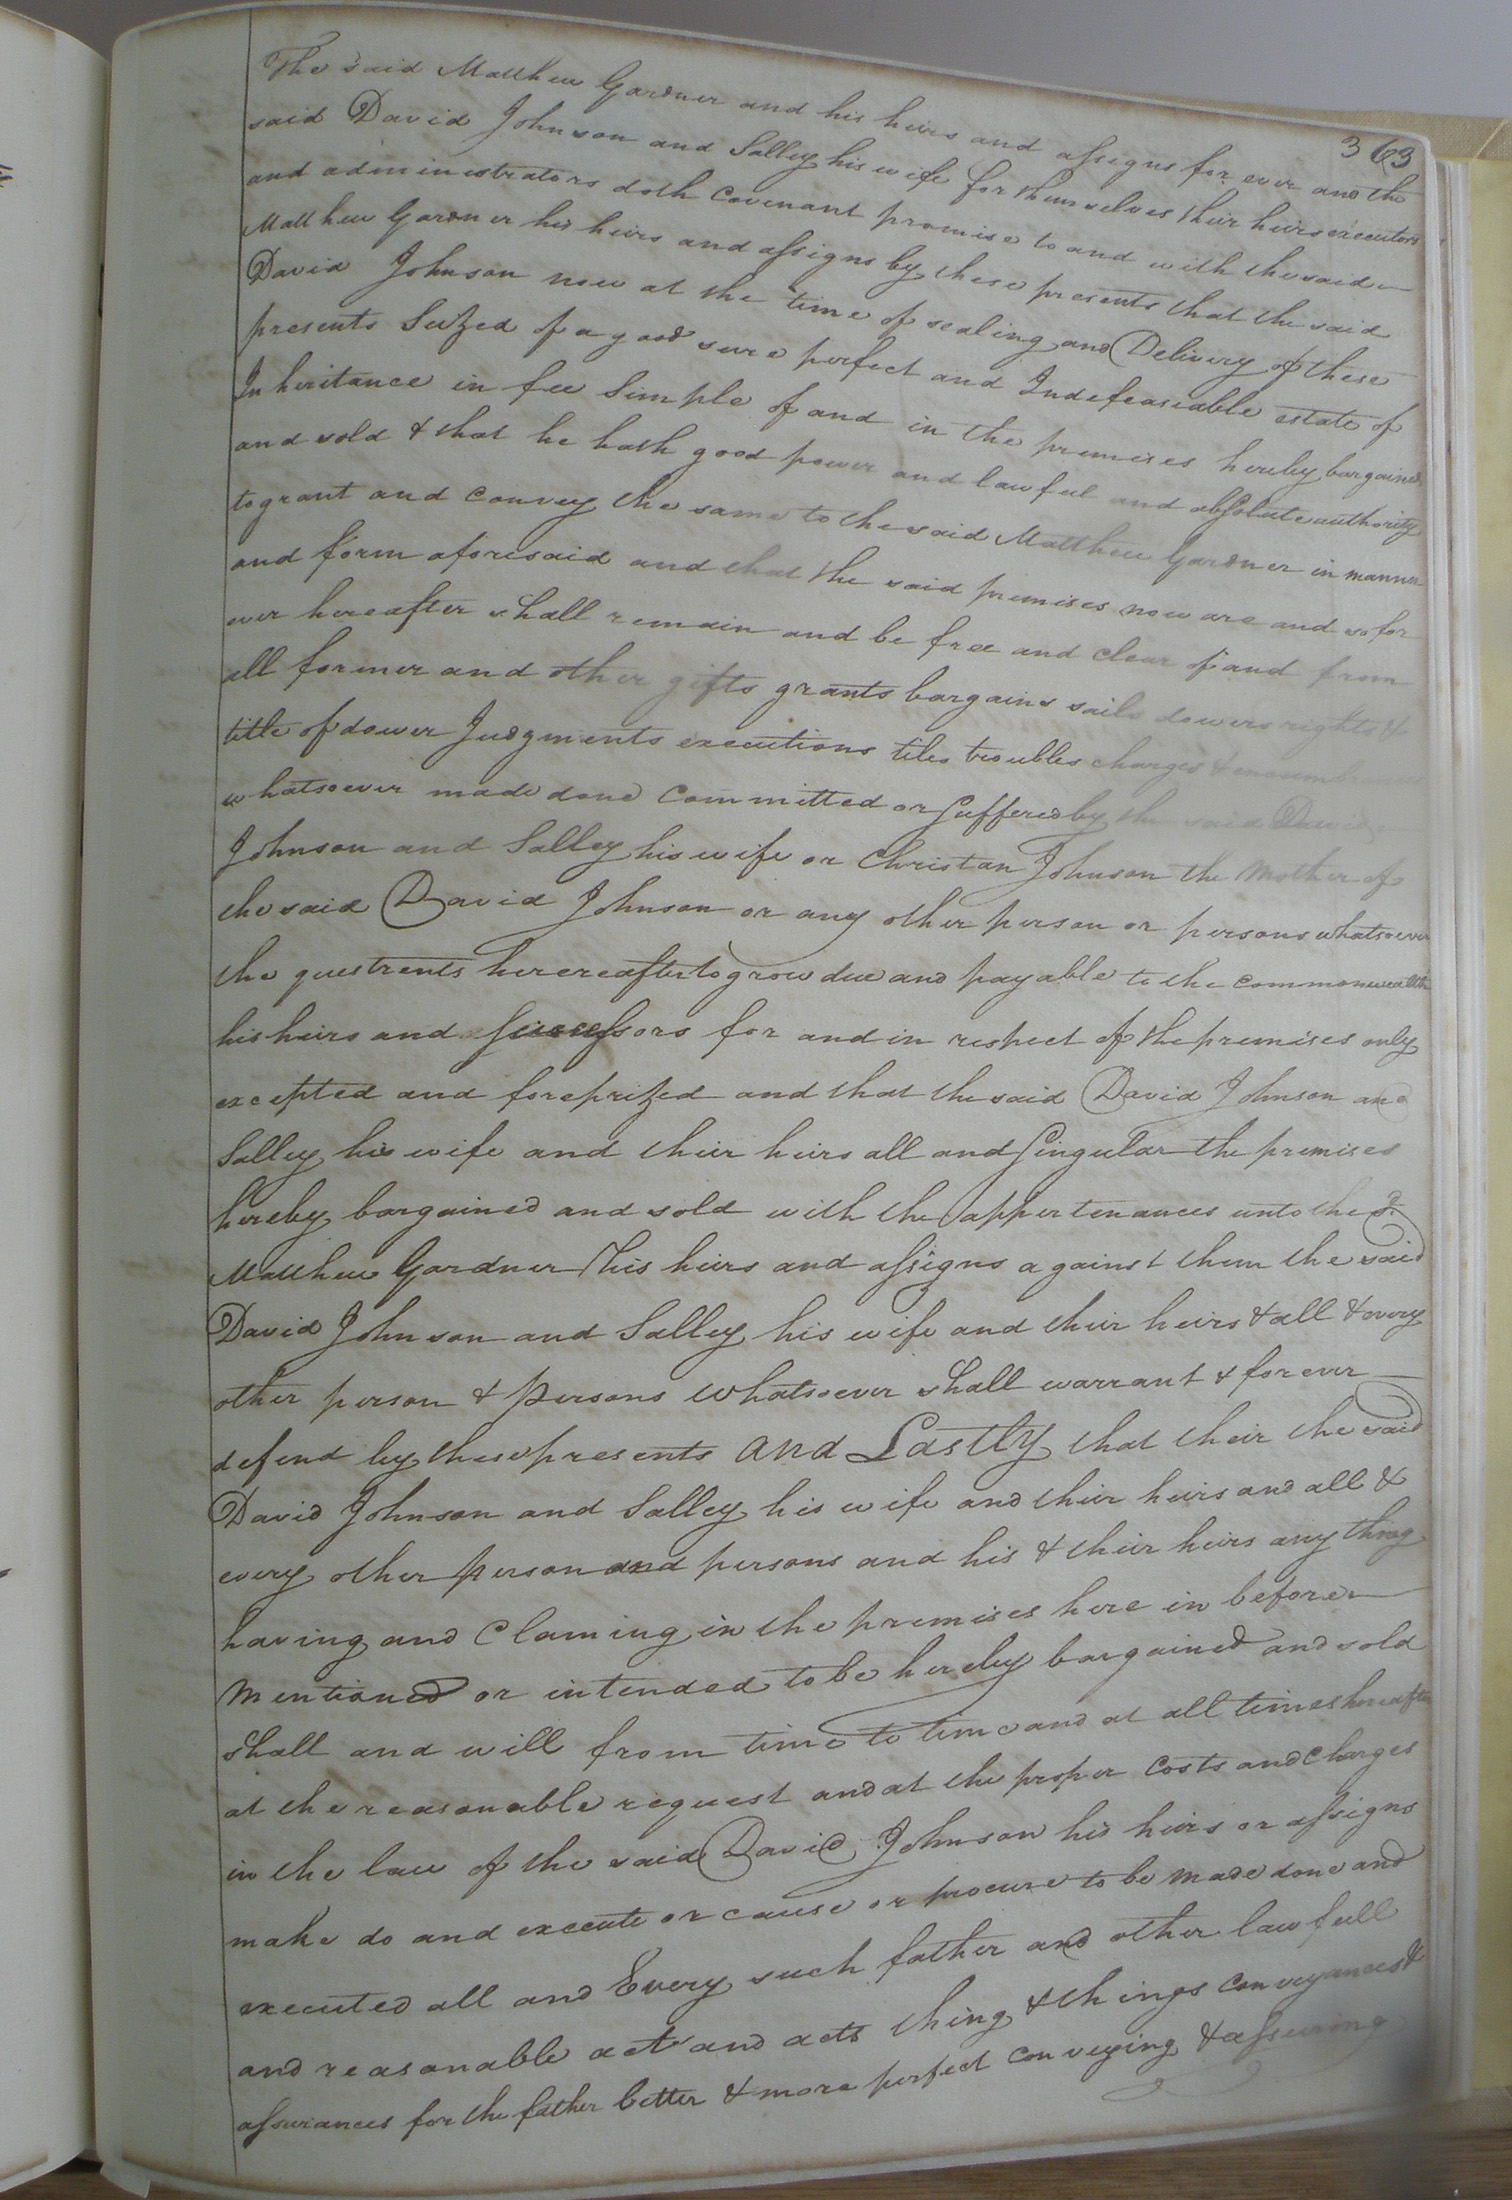 363
The said Matthew Gardner and his heirs and assigns for ever and the
said David Johnson and Salley his wife for themselves their heirs executors
and administrators doth covenant promise to and with the said
Matthew Gardner his heirs and assigns by these presents that the said
David Johnson now at the time of sealing and Delivery of these
presents Seized of a good sure perfect and Indefeaseable estate of
Inheritance in fee Simple of and in the premises hereby bargained
and sold & that he hath good power and lawful and absolute authority
to grant and convey the same to the said Matthew Gardner in manner
and form aforesaid and that the said premises now are and so for
ever hereafter shall remain and be free and clear of and from
all former and other gifts grants bargains sails dowers rights &
title of dower Judgments executions tiles troubles charges &
whatsoever made done Committed or Suffered by the said David
Johnson and Salley his wife or Christan Johnson the Mother of
the said David Johnson or any other person or persons whatsoever
the questrents herereafter to grow due and payable to the commonwealth
his heirs and Successors for and in respect of the premises only
excepted and foreprized and that the said David Johnson and
Salley his wife and their heirs all and Singular the premises
hereby bargained and sold with the appertenances unto the sd.
Matthew Gardner his heirs and assigns against them the said
David Johnson and Salley his wife and their heirs & all & every
other person & persons whatsoever shall warrant & forever
defend by these presents and Lastly that their the said
David Johnson and Salley his wife and their heirs and all &
every other person and persons and his & their heirs any thing
having and Claming in the premises here in before
Mentioned or intended to be hereby bargained and sold
shall and will from time to time and at all times hereafter
at the reasonable request and at the proper Costs and Charges
in the law of the said David Johnson his heirs or assigns
make do and execute or cause or procure to be made done and
executed all and Every such father and other lawfull
and reasonable act and acts thing & things conveyances &
assurances for the father better & more perfect conveying & assuring